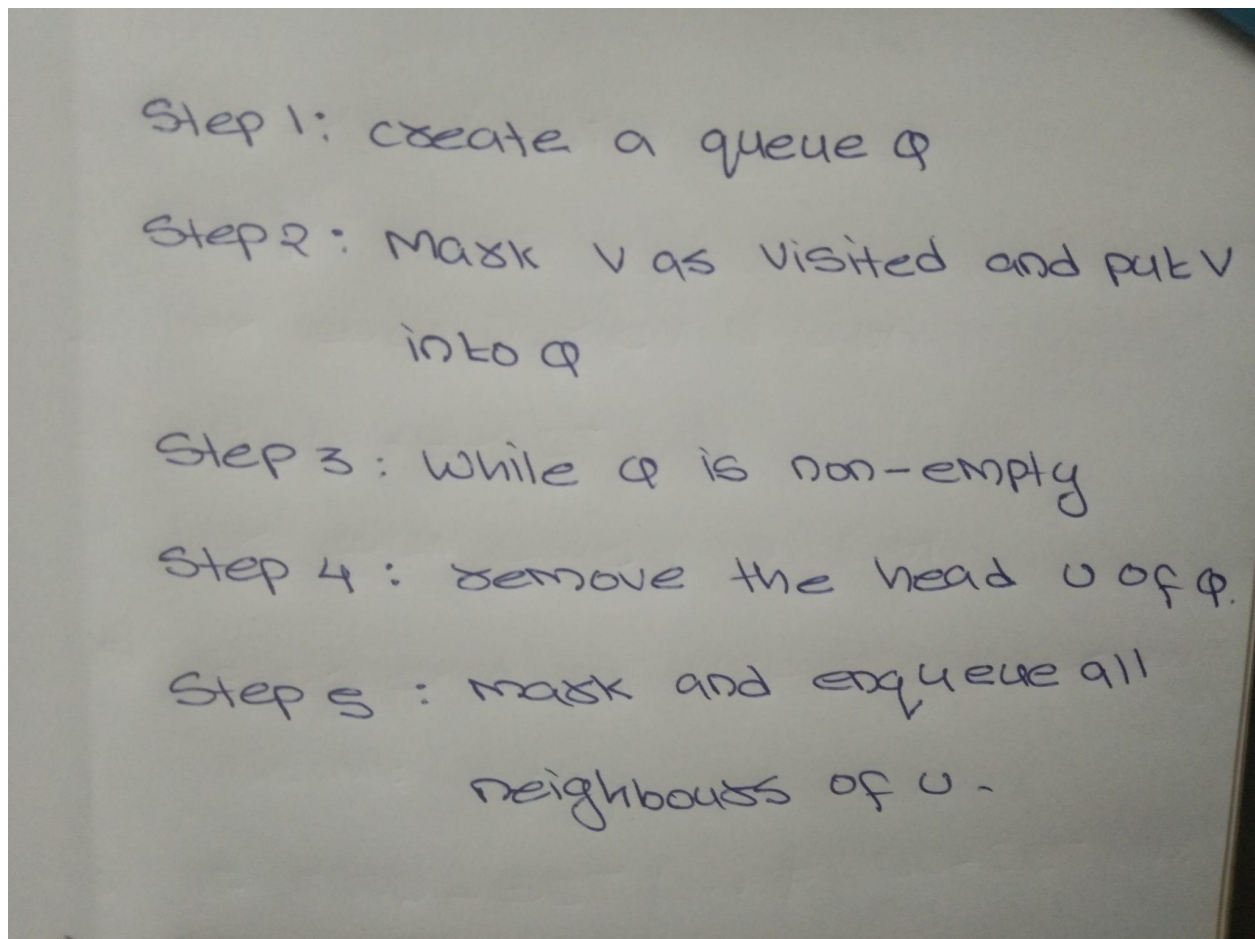 Step 1: create a queue Q
Step 2: Mark v as visited and put v
into Q
Step 3: While Q is non-empty
Step 4: remove the head u of Q.
Step 5: mark and enqueue all
neighbours of u.